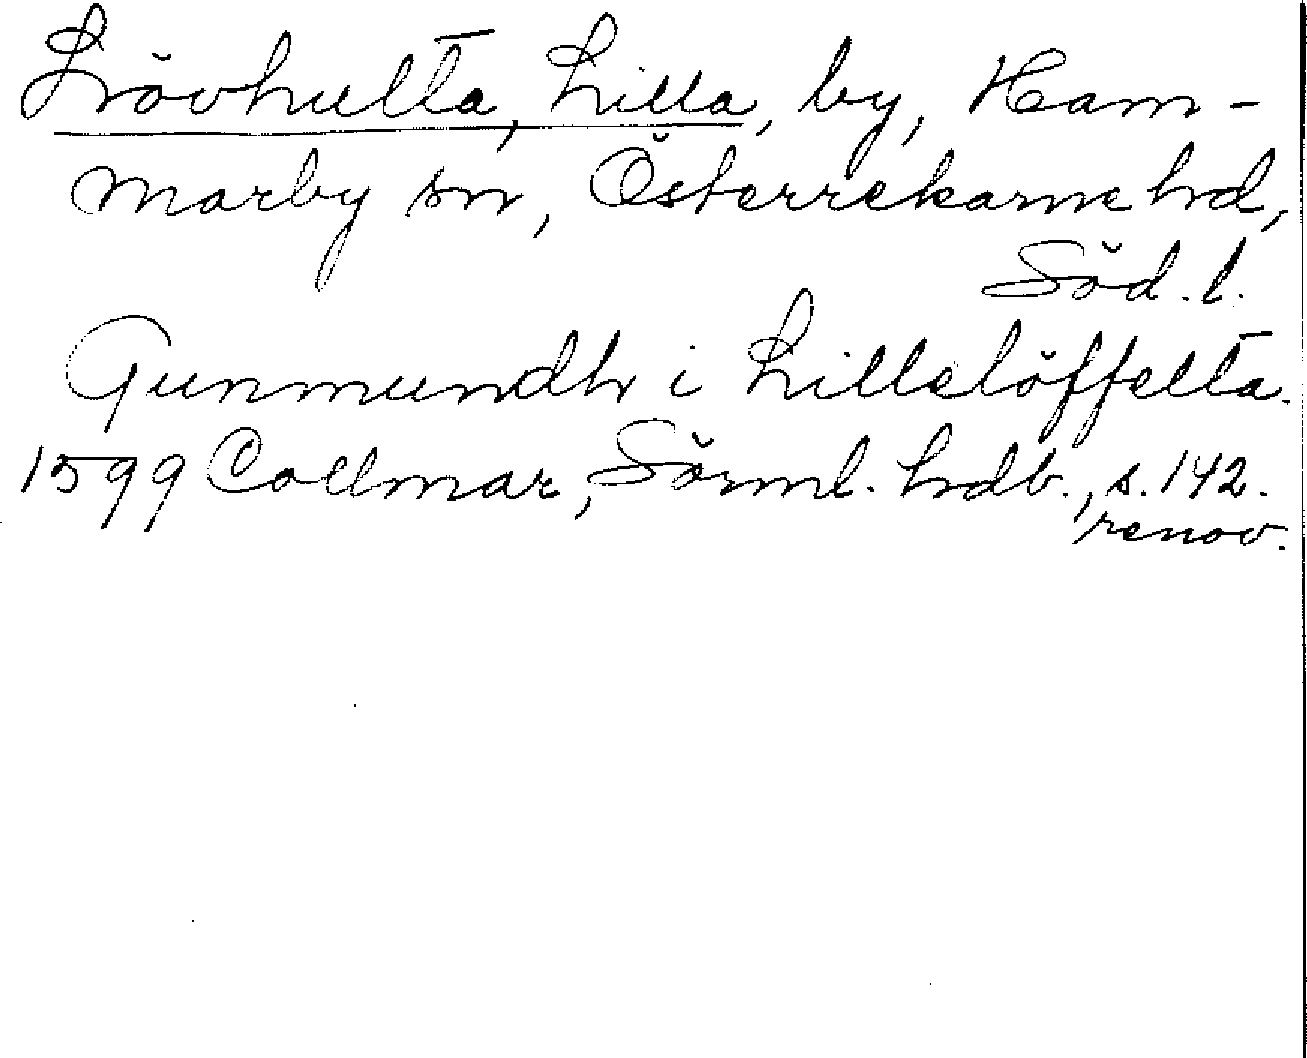 Lövhulta, Lilla, by, Ham-
marby sn, Österrekarne hd,
Söd. l.
Gunmundh i Lillelöffelta.
1599 Collmar, Sörml. hdb., s. 142.
renov.